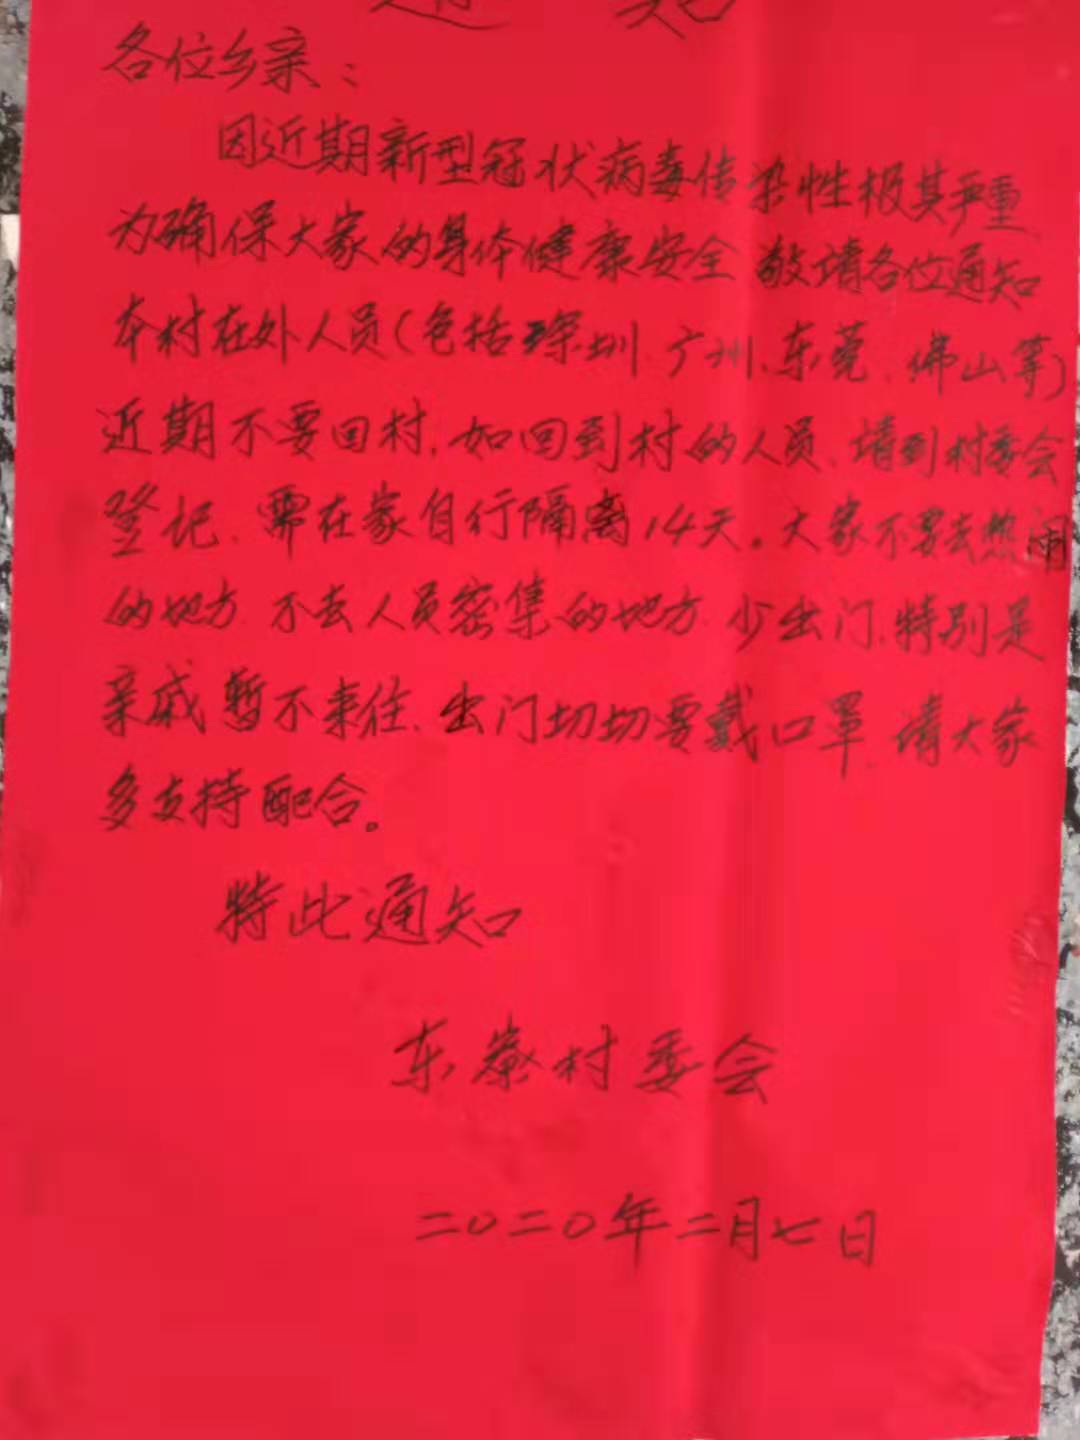 通知
各位乡亲：
因近期新型冠状病毒传染性极其严重
为确保大家的身体健康安全 敬请各位通知
本村在外人员(包括深圳、广州、东莞、佛山等)
近期不要回村，如回到村的人员、请到村委会
登记、需在家自行隔离14天。大家不要去热闹
的地方 不去人员密集的地方 少出门、特别是
亲戚暂不来往、出门切切要戴口罩、请大家
多支持配合。
特此通知
东寮村委会
二〇二〇年二月七日